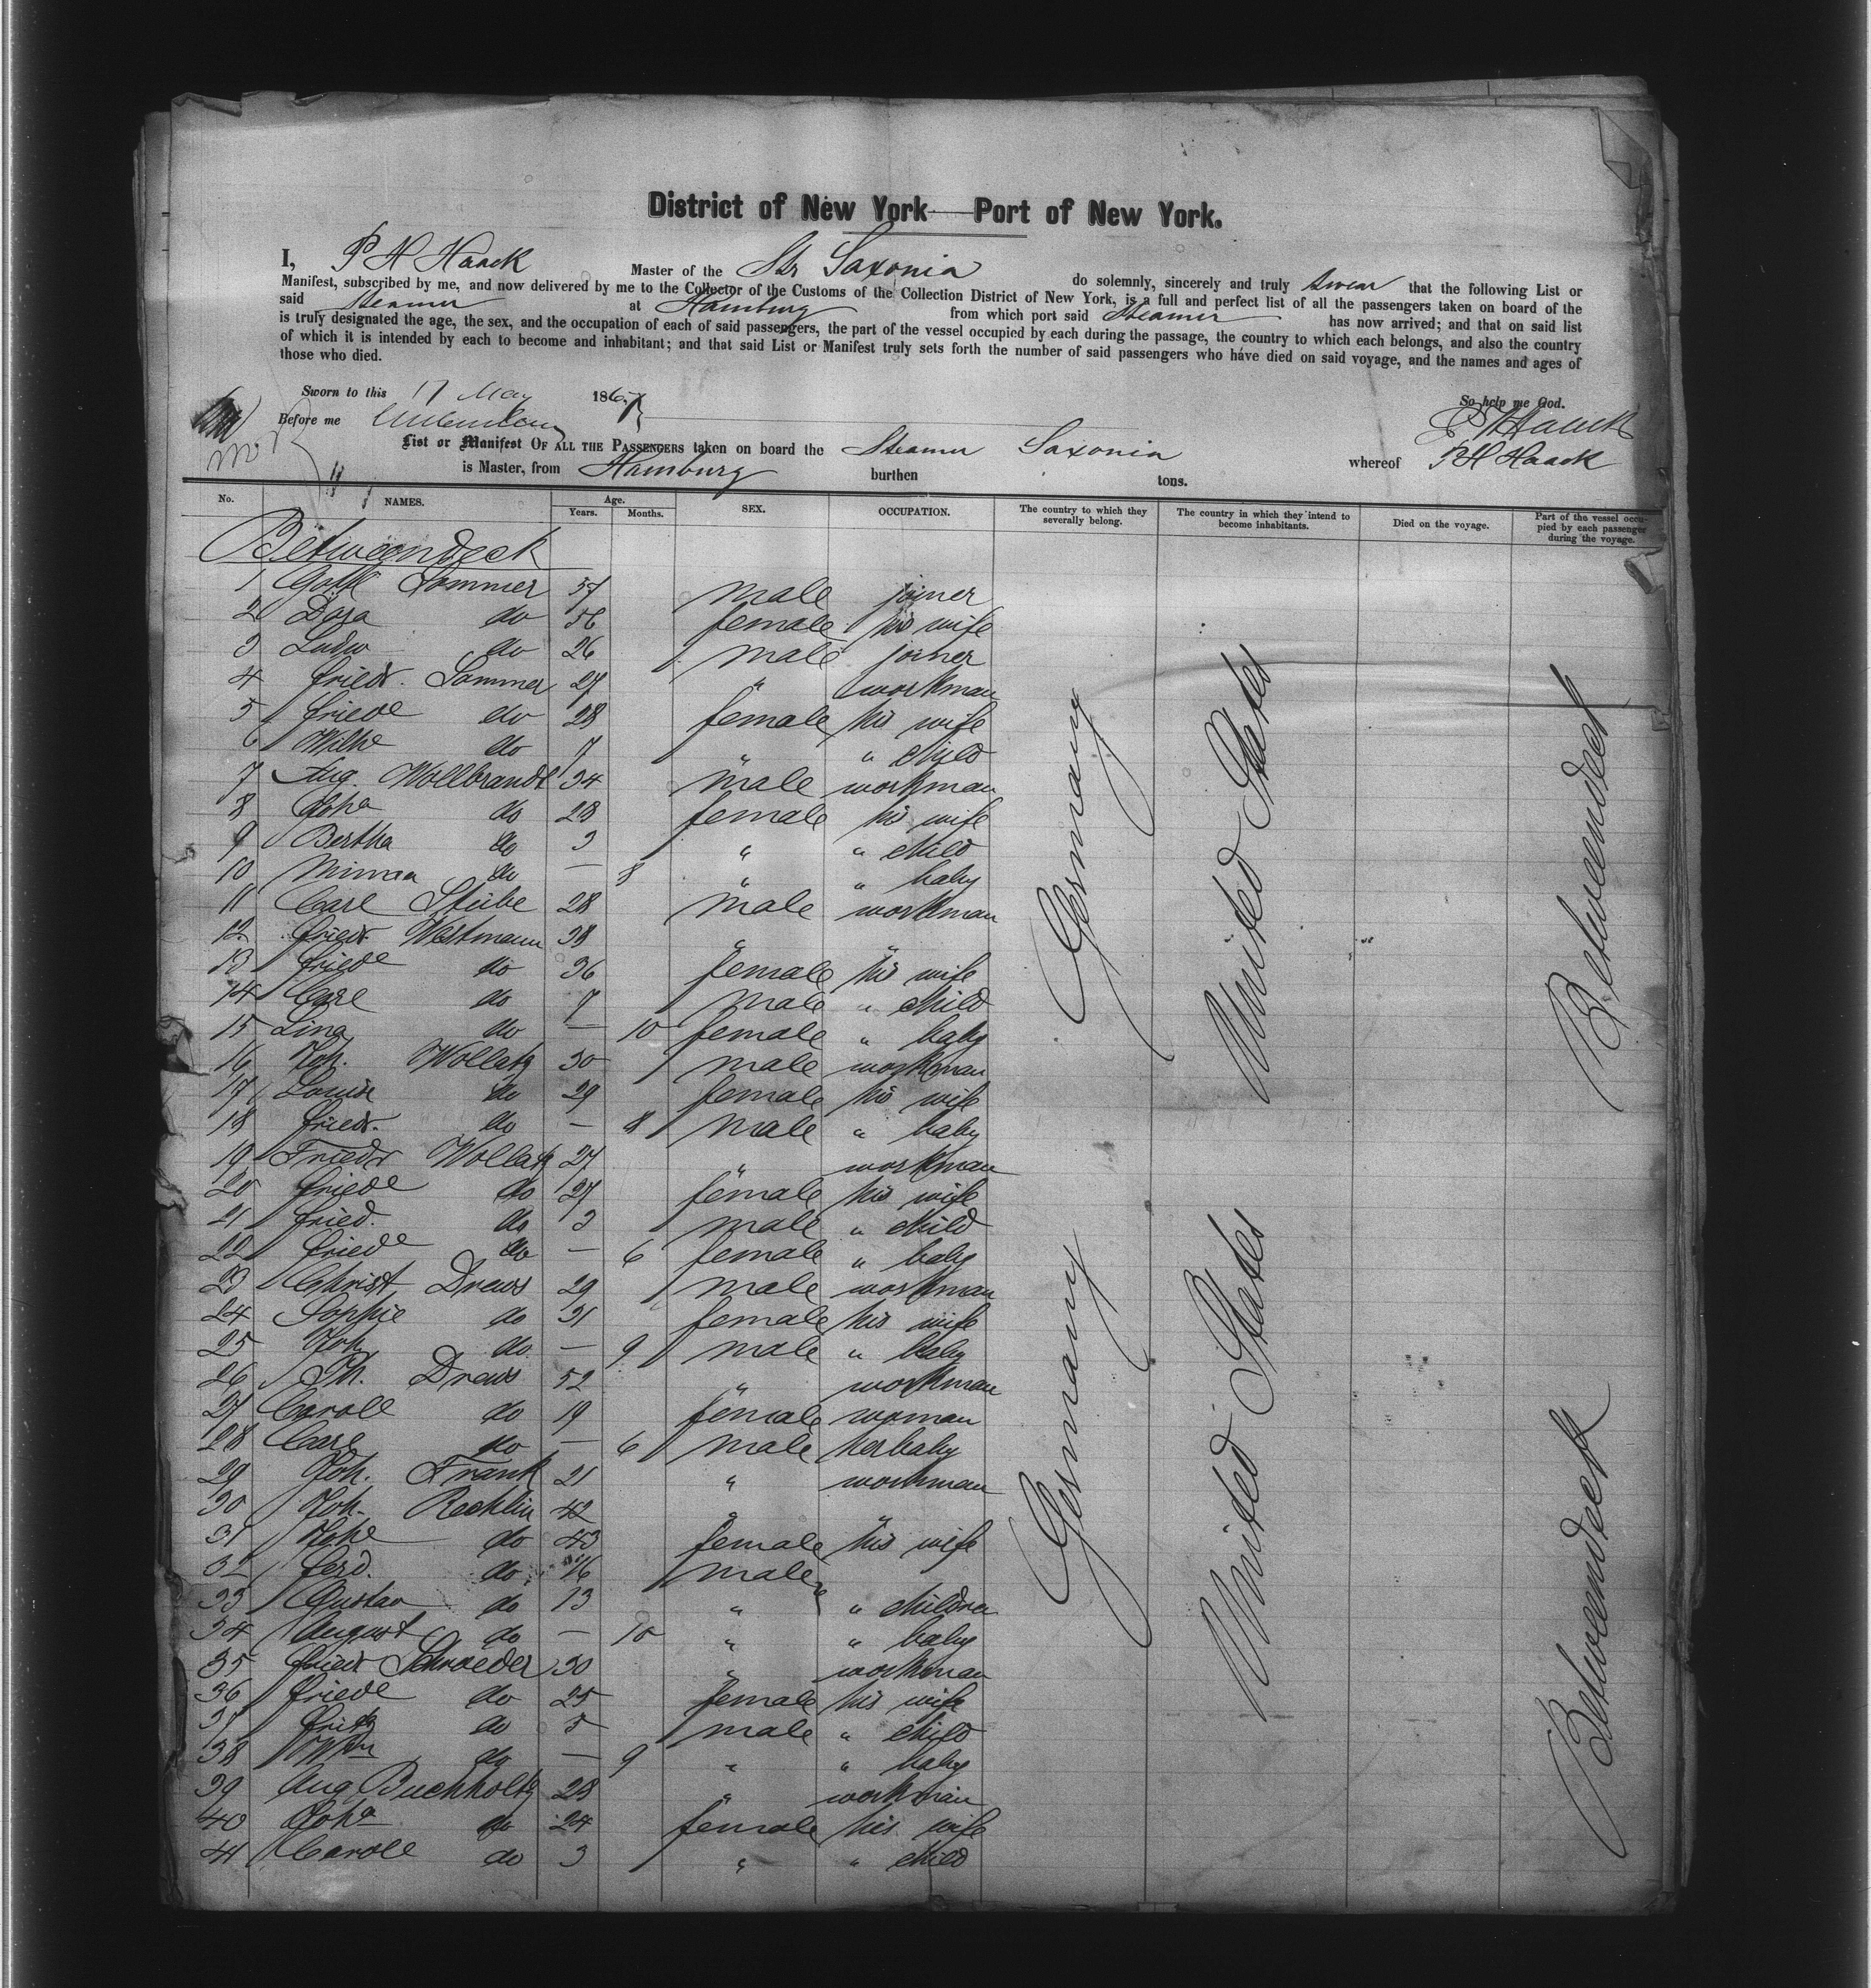 District of New York — Port of New York.
I, P H Haack Master of the Str Saxonia do solemnly, sincerely and truly swear that the following List or
Manifest, subscribed by me, and now delivered by me to the Collector of the Customs of the Collection District of New York, is a full and perfect list of all the passengers taken on board of the
said Steamer at Hamburg from which port said Steamer has now arrived; and that on said list
is truly designated the age, the sex, and the occupation of each of said passengers, the part of the vessel occupied by each during the passage, the country to which each belongs, and also the country
of which it is intended by each to become and inhabitant; and that said List or Manifest truly sets forth the number of said passengers who have died on said voyage, and the names and ages of
those who died.
Sworn to this 17 May 1867 So help me God.
Before me P H Haack
List or Manifest OF ALL THE PASSENGERS taken on board the Steamer Saxonia whereof P H Haack
is Master, from Hamburg burthen tons.
No. NAMES. Age. Years. Months. SEX. OCCUPATION. The country to which they severally belong. The country in which they intend to become inhabitants. Died on the voyage. Part of the vessel occupied by each passenger during the voyage.
Betweendeck
1 Gottl Sommer 57 male joiner
2 Dora do 56 female his wife
3 Ludw do 26 male joiner
4 Friedr. Sommer 27 " workman
5 Friede do 28 female his wife
6 Wilhe do 7 " " child
7 Aug. Wollbrandt 34 male workman
8 Joha do 28 female his wife
9 Bertha do 3 " " child
10 Minna do — 8 " " baby
11 Carl Stübe 28 male workman
12 Friedr Westmann 38 " "
13 Friede do 36 female his wife
14 Carl do 7 male " child
15 Lina do — 10 female " baby
16 Joh. Wollatz 30 male workman
17 Louise do 29 female his wife
18 Friedr. do — 8 male " baby
19 Friedr Wollatz 27 " workman
20 Friede do 27 female his wife
21 Fried. do 3 male " child
22 Friede do — 6 female " baby
23 Christ Drews 29 male workman
24 Sophie do 31 female his wife
25 Joh do — 9 male " baby
26 Drews 52 " workman
27 Carole do 19 female woman
28 Carl do — 6 male her baby
29 Joh. Frank 21 " workman
30 Joh. Rechlin 42 " "
31 Johe do 43 female his wife
32 Ferd. do 16 male
33 Gustav do 13 " " children
34 August do — 10 " " baby
35 Friedr Schroeder 30 " workman
36 Friede do 25 female his wife
37 Fritz do 5 male " child
38 Wm do — 9 " " baby
39 Aug Buchholtz 28 " workman
40 Joha do 24 female his wife
41 Carole do 3 " " child
Germany
Germany
United States
United States
Betweendeck
Betweendeck